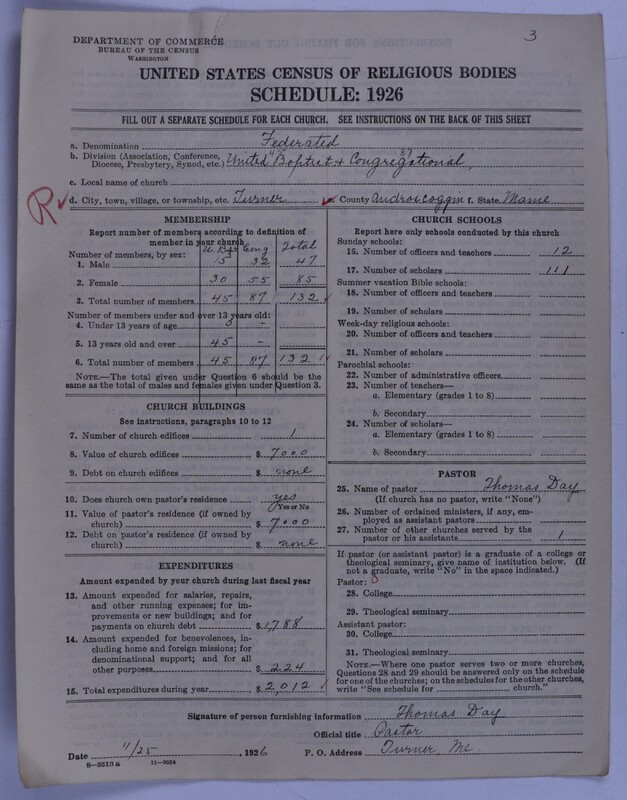 3
DEPARTMENT OF COMMERCE
BUREAU OF THE CENSUS
WASHINGTON
UNITED STATES CENSUS OF RELIGIOUS BODIES
SCHEDULE: 1926
FILL OUT A SEPARATE SCHEDULE FOR EACH CHURCH. SEE INSTRUCTIONS ON THE BACK OF THIS SHEET
a. Denomination Federated
b. Division (Association, Conference, Diocese, Presbytery, Synod, etc.) United Baptist & Congregational
c. Local name of church
R
d. City, town, village, or township, etc. Turner e. County Androscoggin f. State Maine
MEMBERSHIP
Report number of members according to definition of
member in your church
U. Bpt Cong Total
Number of members, by sex:
1. Male 15 32 47
2. Female 30 55 85
3. Total number of members 45 87 132
Number of members under and over 13 years old:
4. Under 13 years of age 0 -
5. 13 years old and over 45 -
6. Total number of members 45 87 132
NOTE.—The total given under Question 6 should be the
same as the total of males and females given under Question 3.
CHURCH BUILDINGS
See instructions, paragraphs 10 to 12
7. Number of church edifices 1
8. Value of church edifices $ 7000
9. Debt on church edifices $ none
10. Does church own pastor's residence yes
(Yes or No)
11. Value of pastor's residence (if owned by
church) $ 7000
12. Debt on pastor's residence (if owned by
church) $ none
EXPENDITURES
Amount expended by your church during last fiscal year
13. Amount expended for salaries, repairs,
and other running expenses; for im-
provements or new buildings; and for
payments on church debt $ 1,788
14. Amount expended for benevolences, in-
cluding home and foreign missions; for
denominational support; and for all
other purposes $ 224
15. Total expenditures during year $ 2,012
CHURCH SCHOOLS
Report here only schools conducted by this church
Sunday schools:
16. Number of officers and teachers 12
17. Number of scholars 111
Summer vacation Bible schools:
18. Number of officers and teachers
19. Number of scholars
Week-day religious schools:
20. Number of officers and teachers
21. Number of scholars
Parochial schools:
22. Number of administrative officers
23. Number of teachers—
a. Elementary (grades 1 to 8)
b. Secondary
24. Number of scholars—
a. Elementary (grades 1 to 8)
b. Secondary
PASTOR
25. Name of pastor Thomas Day
(If church has no pastor, write "None")
26. Number of ordained ministers, if any, em-
ployed as assistant pastors
27. Number of other churches served by the
pastor or his assistants 1
If pastor (or assistant pastor) is a graduate of a college or
theological seminary, give name of institution below. (If
not a graduate, write "No" in the space indicated.)
Pastor:
28. College
29. Theological seminary
Assistant pastor:
30. College
31. Theological seminary
NOTE.—Where one pastor serves two or more churches,
Questions 28 and 29 should be answered only on the schedule
for one of the churches; on the schedules for the other churches,
write "See schedule for church."
Signature of person furnishing information Thomas Day
Official title Pastor
Date 11/25, 1926 P. O. Address Turner Me.
8—5513a 11—9024